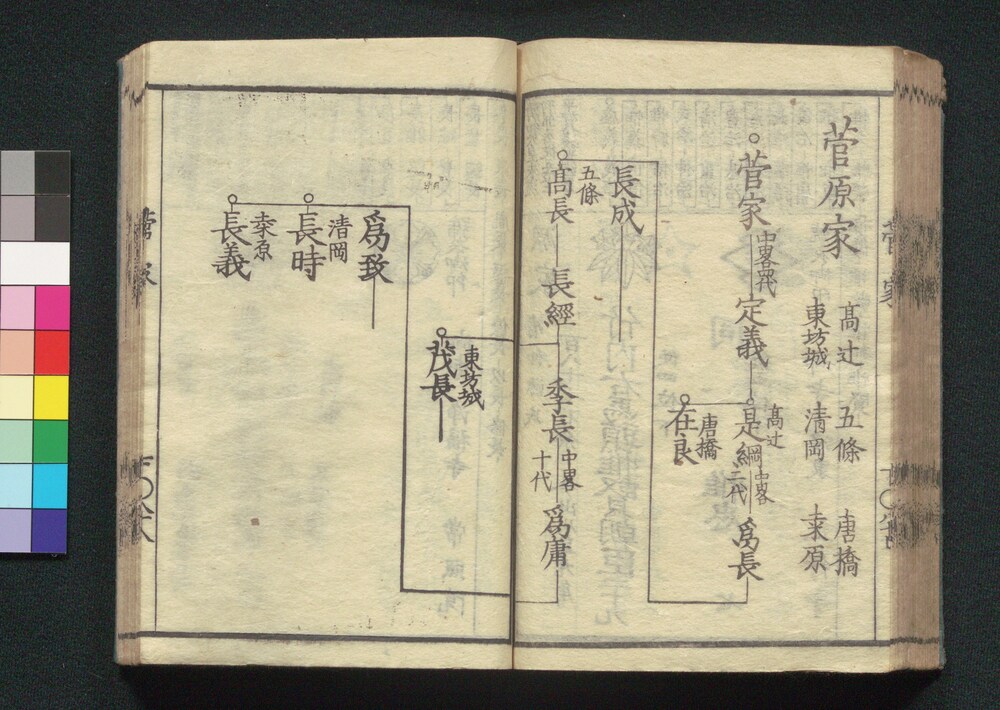 菅原家
髙辻 五條 唐橋
東坊城 清岡 桒原
菅家
中畧四代
定義
髙辻
是綱
中畧
二代
爲長
唐橋
在良
長成
五條
髙長
長經
季長
中畧
十代
爲庸
東坊城
茂長
爲致
清岡
長時
桒原
長義
菅家
菅家